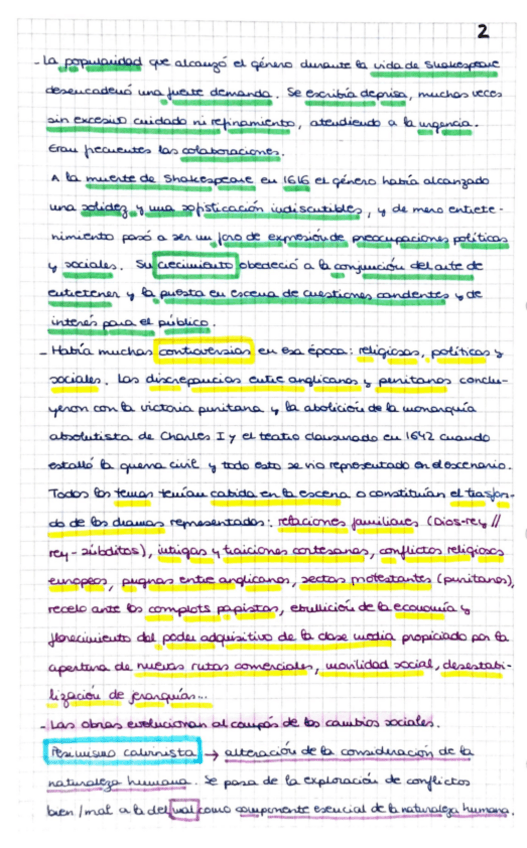 2
- La popularidad que alcanzó el género durante la vida de Shakespeare
desencadenó una fuerte demanda. Se escribía deprisa, muchas veces
sin excesivo cuidado ni refinamiento, atendiendo a la urgencia.
Eran frecuentes las colaboraciones.
A la muerte de Shakespeare en 1616 el género había alcanzado
una solidez y una sofisticación indiscutibles, y de mero entrete-
nimiento pasó a ser un foro de expresión de preocupaciones políticas
y sociales. Su crecimiento obedeció a la conjunción del arte de
entretener y la puesta en escena de cuestiones candentes y de
interés para el público.
- Había muchas controversias en esa época: religiosas, políticas y
sociales. Las discrepancias entre anglicanos y puritanos conclu-
yeron con la victoria puritana y la abolición de la monarquía
absolutista de Charles I y el teatro clausurado en 1642 cuando
estalló la guerra civil y todo esto se vio representado en el escenario.
Todos los temas tenían cabida en la escena o constituían el trasfon-
do de los dramas representados: relaciones familiares (Dios-rey //
rey-súbditos), intrigas y traiciones cortesanas, conflictos religiosos
europeos, pugnas entre anglicanos, sectas protestantes (puritanos),
recelo ante los complots papistas, ebullición de la economía y
florecimiento del poder adquisitivo de la clase media propiciado por la
apertura de nuevas rutas comerciales, movilidad social, desestabi-
lización de jerarquías...
- Las obras evolucionan al compás de los cambios sociales.
Pesimismo calvinista → alteración de la consideración de la
naturaleza humana. Se pasa de la exploración de conflictos
bien/mal a la del mal como componente esencial de la naturaleza humana.